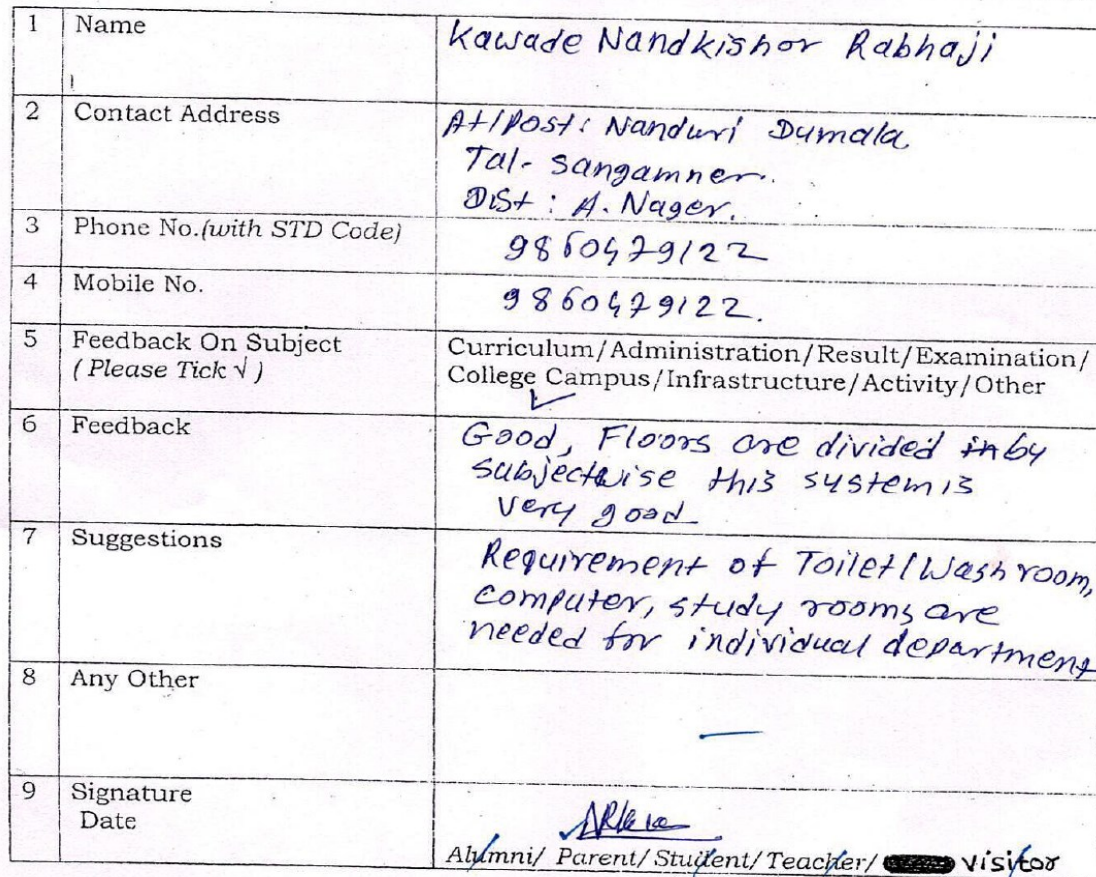 1 Name Kawade Nandkishor Rabhaji
2 Contact Address At/Post: Nanduri Dumala
Tal- Sangamner.
Dist: A. Nager.
3 Phone No.(with STD Code) 9860479122
4 Mobile No. 9860479122.
5 Feedback On Subject Curriculum/Administration/Result/Examination/
( Please Tick √ ) College Campus/Infrastructure/Activity/Other
6 Feedback Good, Floors are divided in by
subjectwise this system is
very good
7 Suggestions Requirement of Toilet/Wash room,
computer, study rooms are
needed for individual department
8 Any Other —
9 Signature
Date
Alumni/ Parent/ Student/ Teacher/ visitor